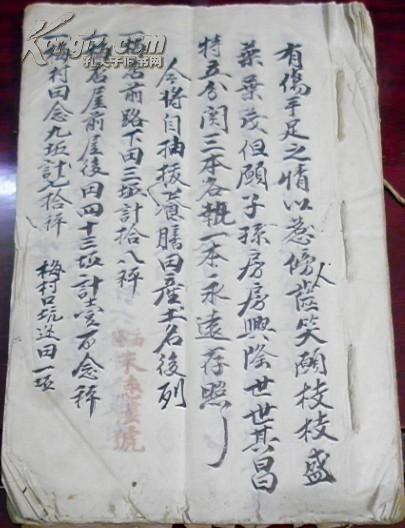 有傷手足之情以惹傍人齒笑願枝枝盛
葉葉茂但願子孫房房興隆世世其昌
特立分関三本各執一本永遠存照
今將自抽拔養膳田產土名後列
一 屋前路下田三坵計拾八秤
屋前屋後田四十三坵計壹百念秤
一梅村田念九坵計七拾秤 梅村口坑边田一坵
孔夫子旧书网